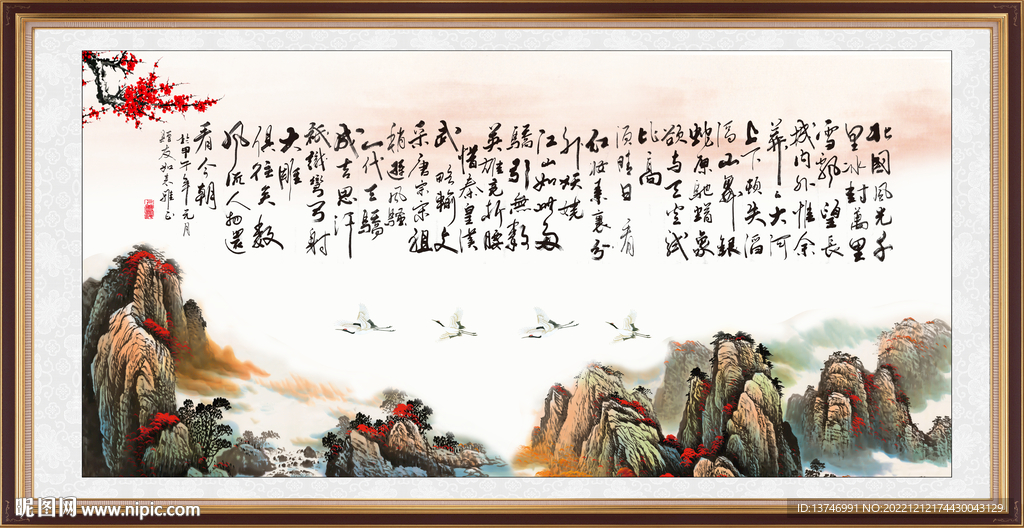 北國風光千
里冰封萬里
雪飘望長
城内外惟余
莽〻大河
上下頓失滔
滔山舞銀
蛇原馳蜡象
欲与天公試
比高
須晴日看
红妝素裹分
外妖娆
江山如此多
驕引無數
英雄竞折腰
惜秦皇漢
武略輸文
采唐宗宋祖
稍遜風騷
一代天驕
成吉思汗
祇識彎弓射
大雕
俱往矣數
風流人物還
看今朝
於甲午年元月
昵图网 www.nipic.com
ID:13746991 NO:20221212174430043129